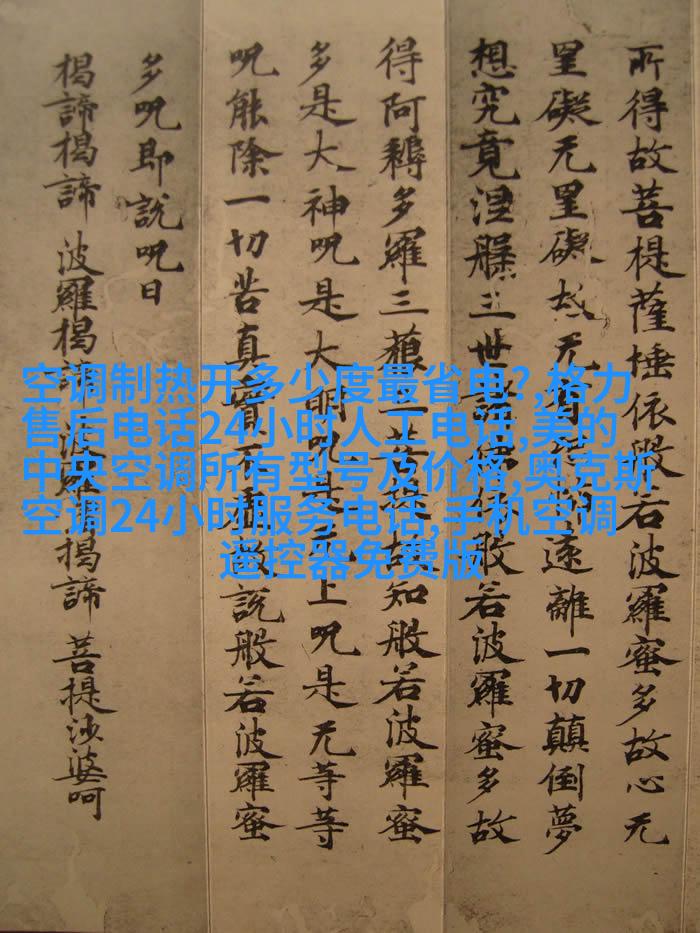 所得故菩提薩埵依般若波羅蜜多故心无
罣礙无罣礙故无有恐怖遠離一切顛倒夢
想究竟涅槃三世諸佛依般若波羅蜜多故
得阿耨多羅三藐三菩提故知般若波羅蜜
多是大神呪是大明呪是无上呪是无等等
呪能除一切苦真實不虛故說般若波羅蜜
多呪即說呪曰
揭諦揭諦 波羅揭諦 波羅僧揭諦 菩提沙婆呵
空调制热开多少度最省电?,格力
售后电话24小时人工电话,美的
中央空调所有型号及价格,奥克斯
空调24小时服务电话,手机空调
遥控器免费版